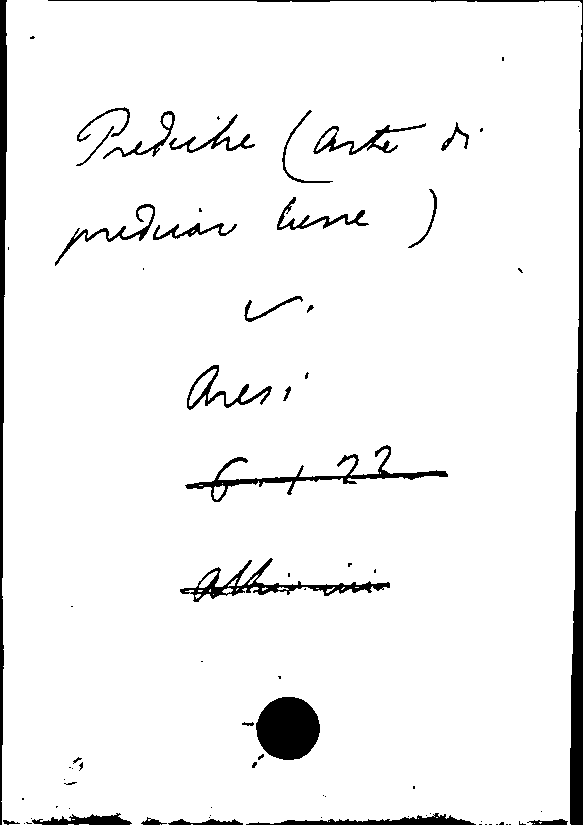 Prediche (arte di
predicar bene)
v.
Aresi
6.1.22